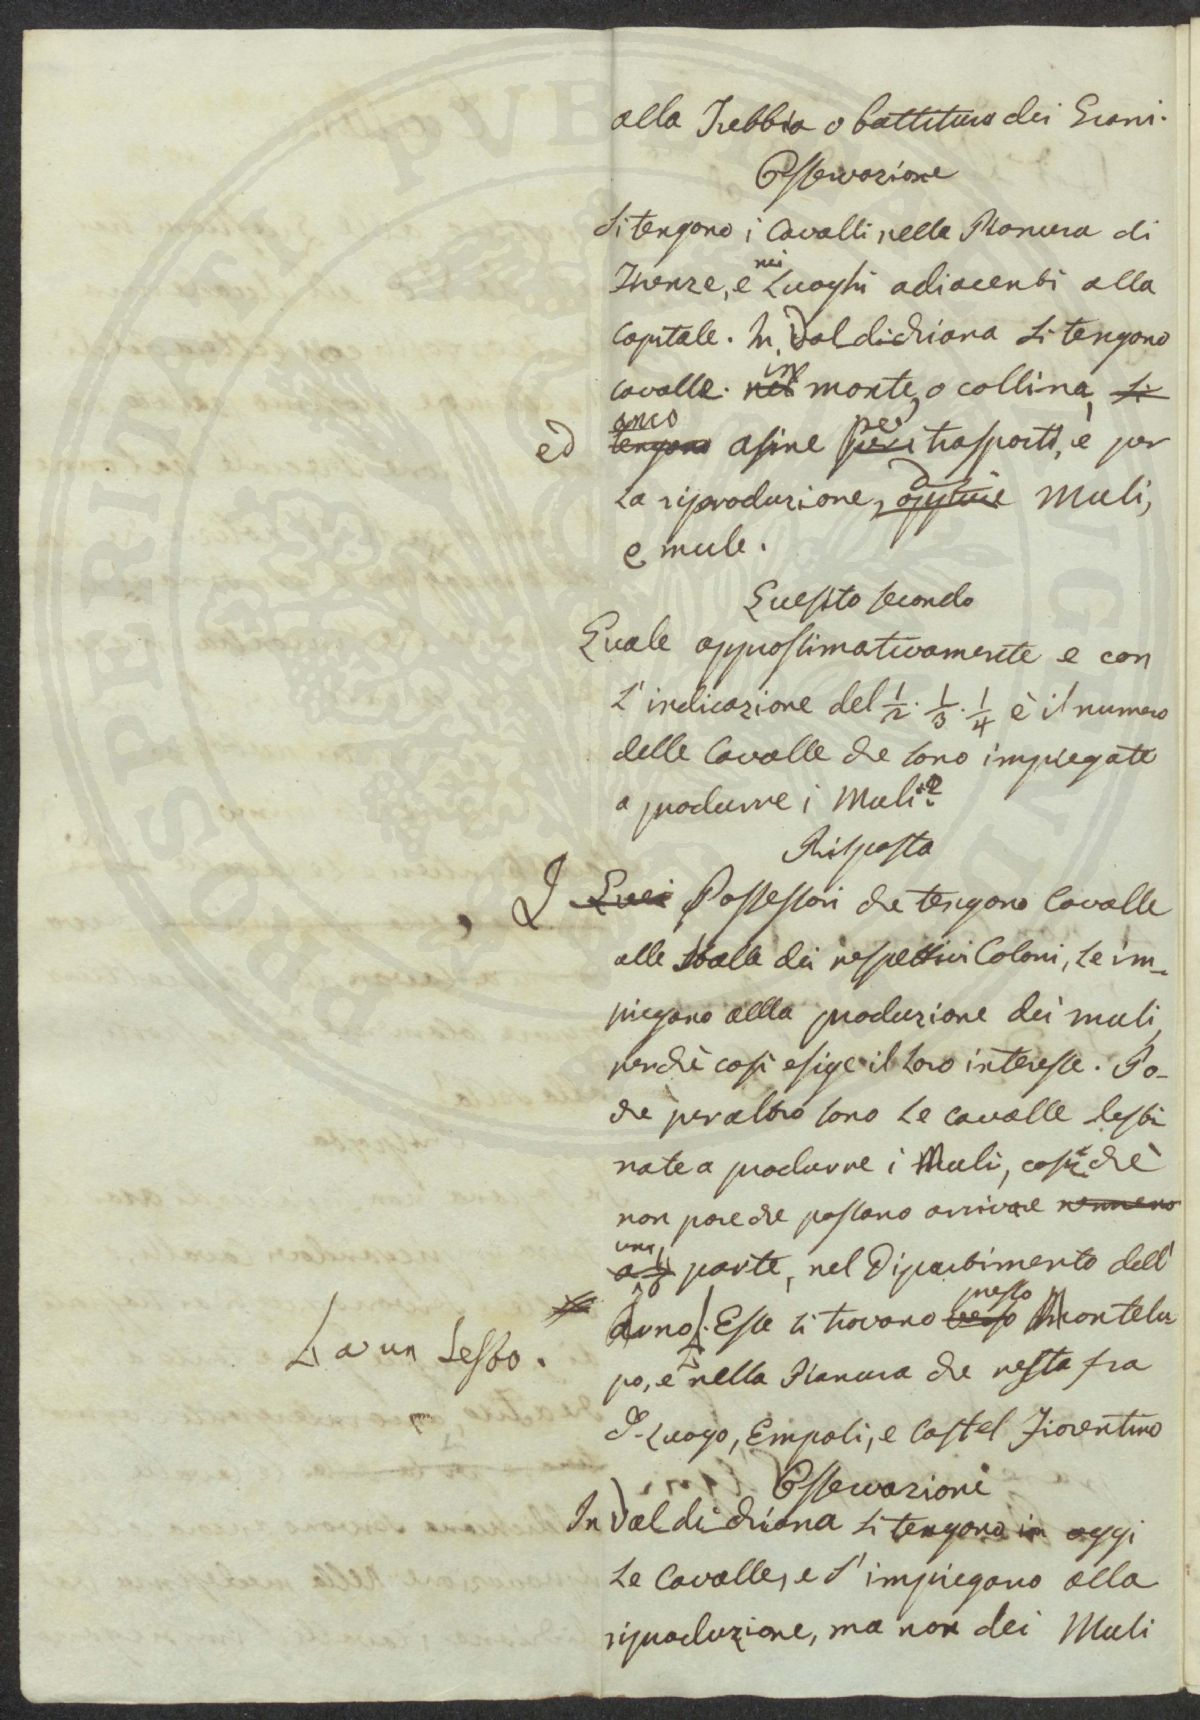 alla Trebbia o battitura dei Grani.
Osservazione
Si tengono i Cavalli nella Pianura di
Firenze, e nei Luoghi adiacenti alla
Capitale. In Val di chiana si tengono
cavalle. nei in monte, o collina, si
ed tengono anco asine pei per trasporti, e per
la riproduzione, Muli,
e mule.
Quesito secondo
Quale approssimativamente e con
l'indicazione del 1/2. 1/3. 1/4 è il numero
delle Cavalle che sono impiegate
a produrre i Muli?
Risposta
I Quei Possessori che tengono Cavalle
alle Stalle dei respettivi Coloni, le im-
piegano allla produzione dei muli,
perchè così esige il loro interesse. Po-
che per altro sono le cavalle desti
nate a produrre i Muli, così chè
non pare che possano arrivare nemmeno
a 1/6 una parte, nel Dipartimento dell'
Arno. Esse si trovano verso presso Montelu
La un Sesto.
po, e nella Pianura che resta fra
d. Luogo, Empoli, e Castel Fiorentino
Osservazioni
In Val di chiana si tengono in oggi
le Cavalle, e s'impiegano alla
riproduzione, ma non dei Muli
PVBLICAE
PROSPERITATI